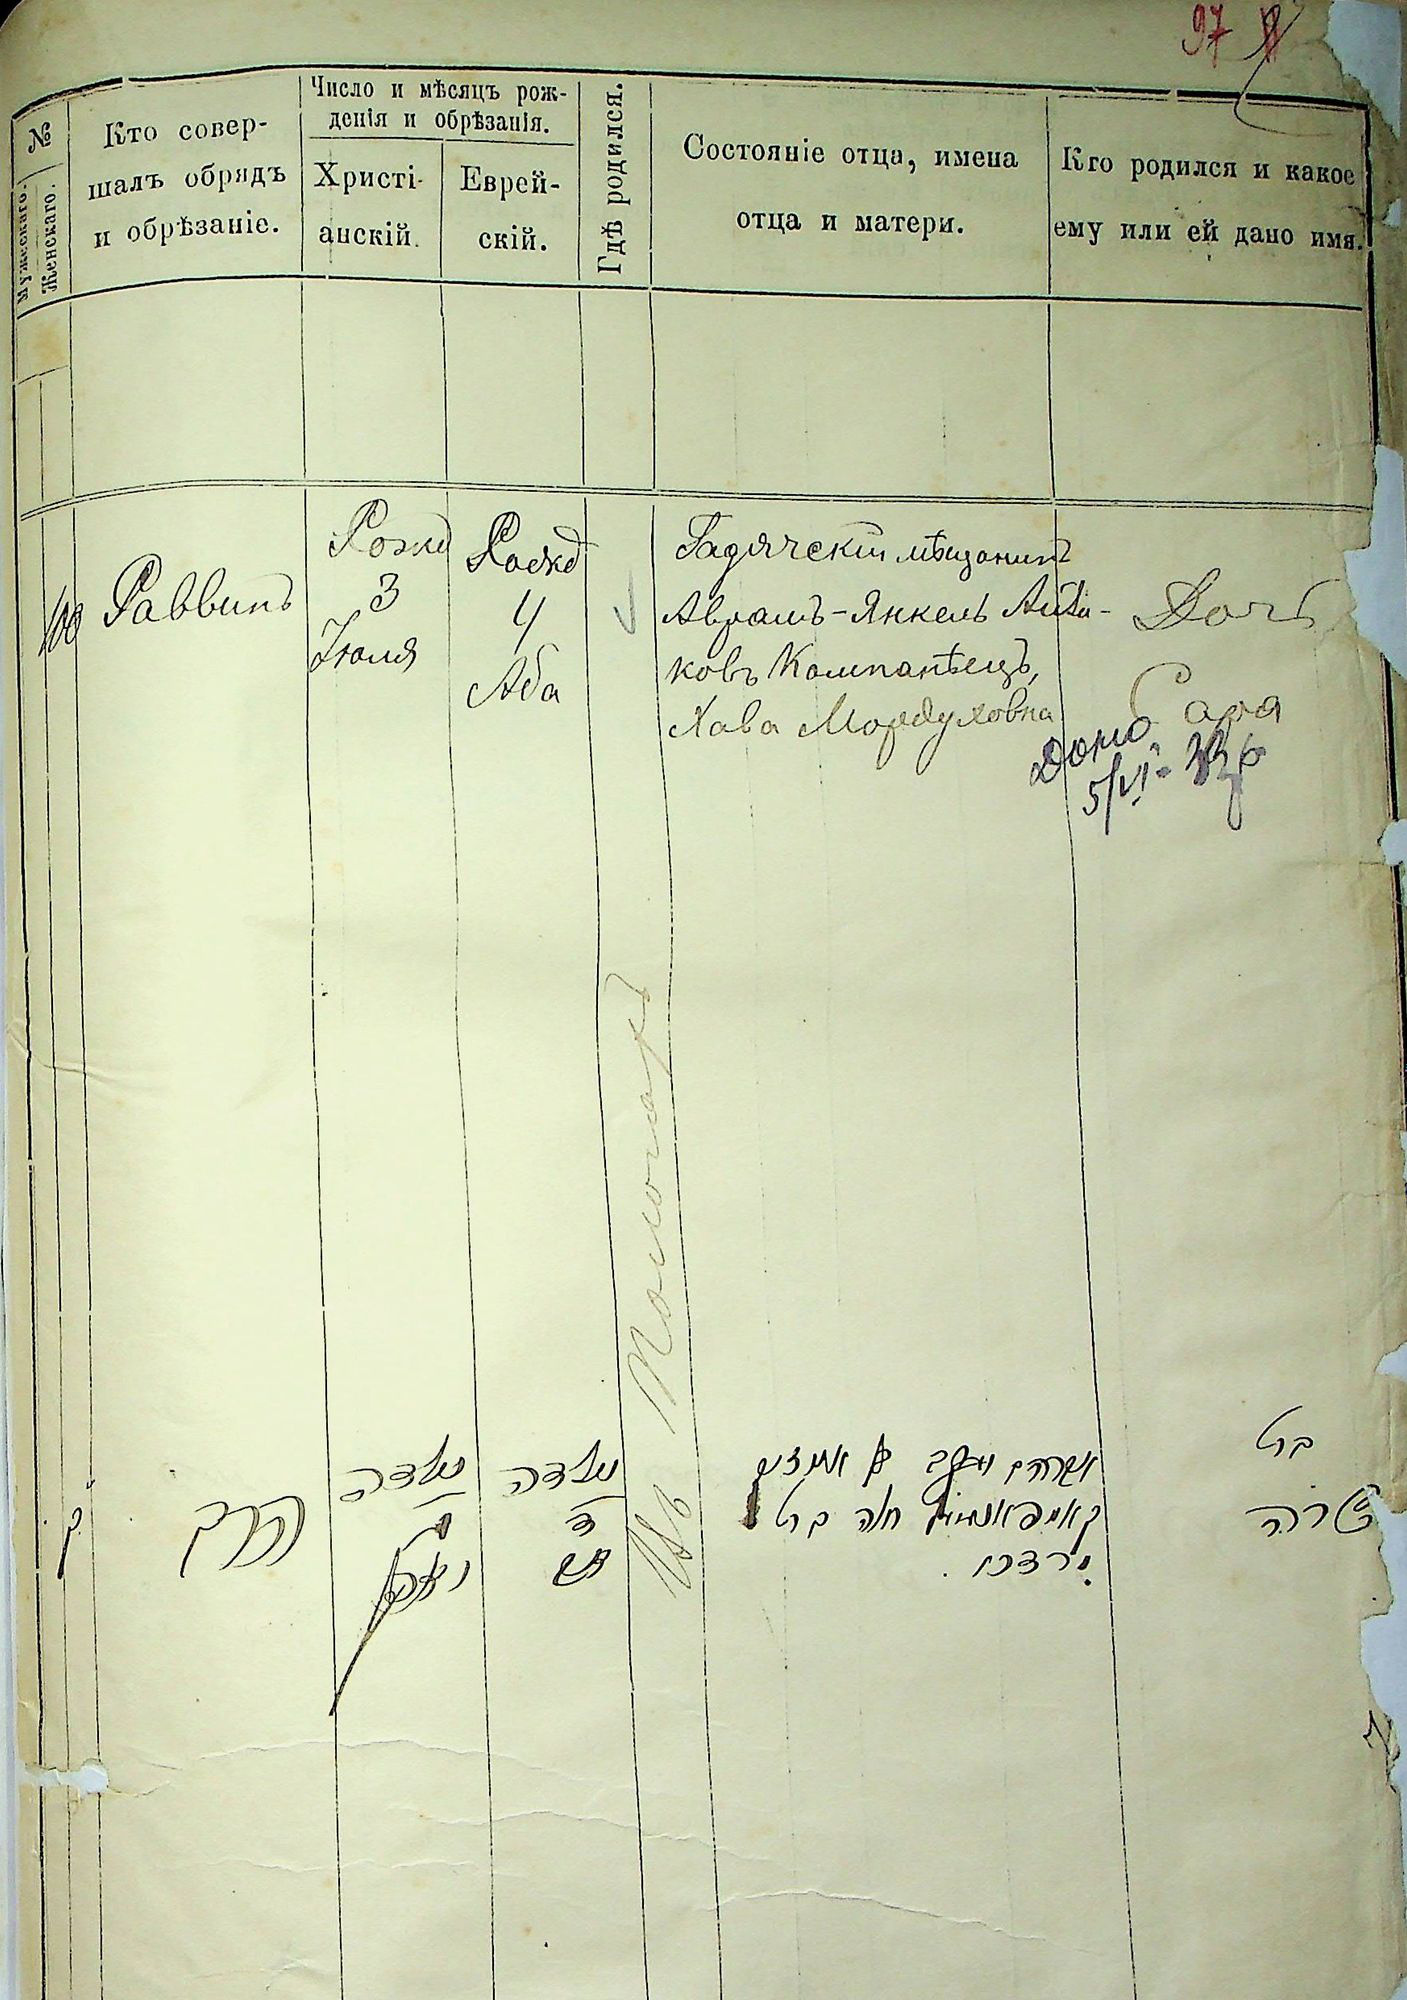 97
№
Мужескаго.
Женскаго.
Кто совер-
шалъ обрядъ
и обрѣзаніе.
Число и мѣсяцъ рож-
денія и обрѣзанія.
Христі-
анскій.
Еврей-
скій.
Гдѣ родился.
Состояніе отца, имена
отца и матери.
Кто родился и какое
ему или ей дано имя.
100
Раввинъ
Рожд
3
Іюля
Рожд
4
Аба
Гадячскій мѣщанинъ
Аврамъ-Янкель
ковъ Компанѣецъ,
Хава Мордуховна
Дочь
Сара
5/VI
Въ
ק
הרב
נולדה
נולדה
ד
אברהם יעקב
חוה בת
בת
שרה